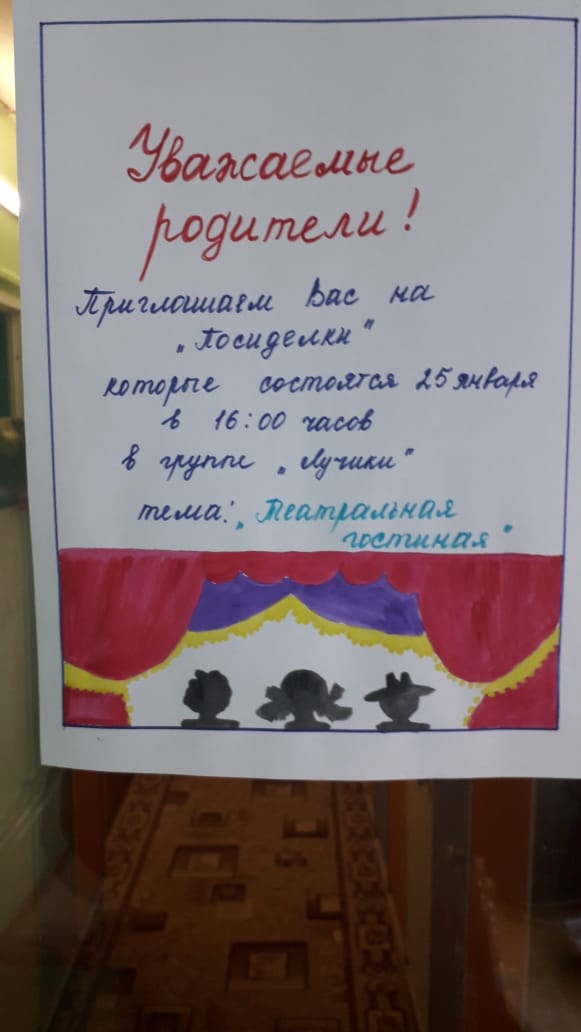 Уважаемые
родители!
Приглашаем Вас на
„Посиделки"
которые состоятся 25 января
в 16:00 часов
в группе „Лучики"
тема: „Театральная
гостиная"